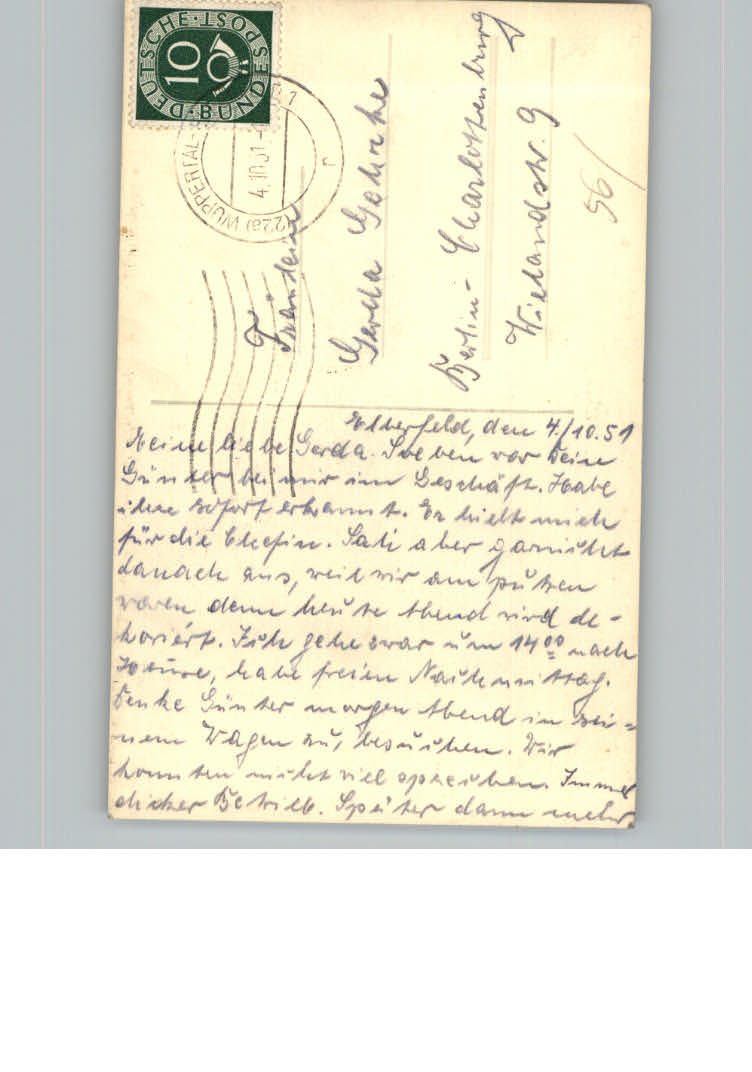 DEUTSCHE·POST
10
BUNDES
(22a) WUPPERTAL-
4.10.51
1
r
Fräulein
Gerda
Berlin-Charlottenburg
Wielandstr. 9
56/
Elberfeld, den 4./10.51
Meine liebe Gerda. Soeben war Dein
Günter bei mir im Geschäft. Habe
ihn sofort erkannt. Er hielt mich
für die Chefin. Sah aber garnicht
danach aus, weil wir am putzen
waren denn heute Abend wird de-
koriert. Ich gehe zwar um 14⁰⁰ nach
Hause, habe freien Nachmittag.
Denke Günter morgen Abend in sei=
nem Wagen zu besuchen. Wir
konnten nicht viel sprechen. Immer
dicker Betrieb. Später dann mehr.